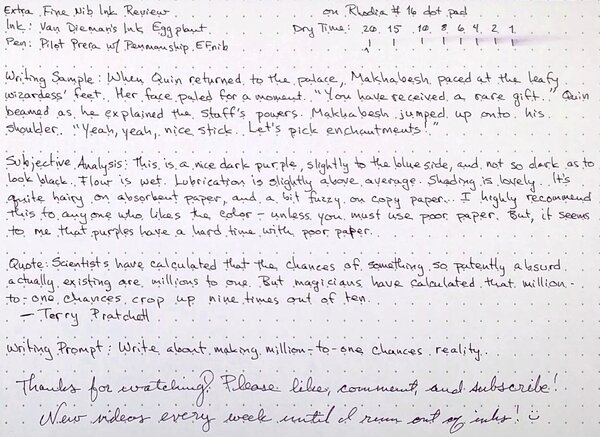 Extra Fine Nib Ink Review on Rhodia #16 dot pad
Ink: Van Dieman's Ink Eggplant Dry Time: 20 15 10 8 6 4 2 1
Pen: Pilot Prera w/ Penmanship EF nib
Writing Sample: When Quin returned to the palace, Makhabesh paced at the leafy
wizardess' feet. Her face paled for a moment. "You have received a rare gift." Quin
beamed as he explained the staff's powers. Makhabesh jumped up onto his
shoulder. "Yeah, yeah, nice stick. Let's pick enchantments!"
Subjective Analysis: This is a nice dark purple, slightly to the blue side, and not so dark as to
look black. Flow is wet. Lubrication is slightly above average. Shading is lovely. It's
quite hairy on absorbent paper, and a bit fuzzy on copy paper... I highly recommend
this to anyone who likes the color - unless you must use poor paper. But, it seems
to me that purples have a hard time with poor paper.
Quote: Scientists have calculated that the chances of something so patently absurd
actually existing are millions to one. But magicians have calculated that million-
to-one chances crop up nine times out of ten.
- Terry Pratchett
Writing Prompt: Write about making million-to-one chances reality.
Thanks for watching! Please like, comment, and subscribe!
New videos every week until I run out of inks! ☺